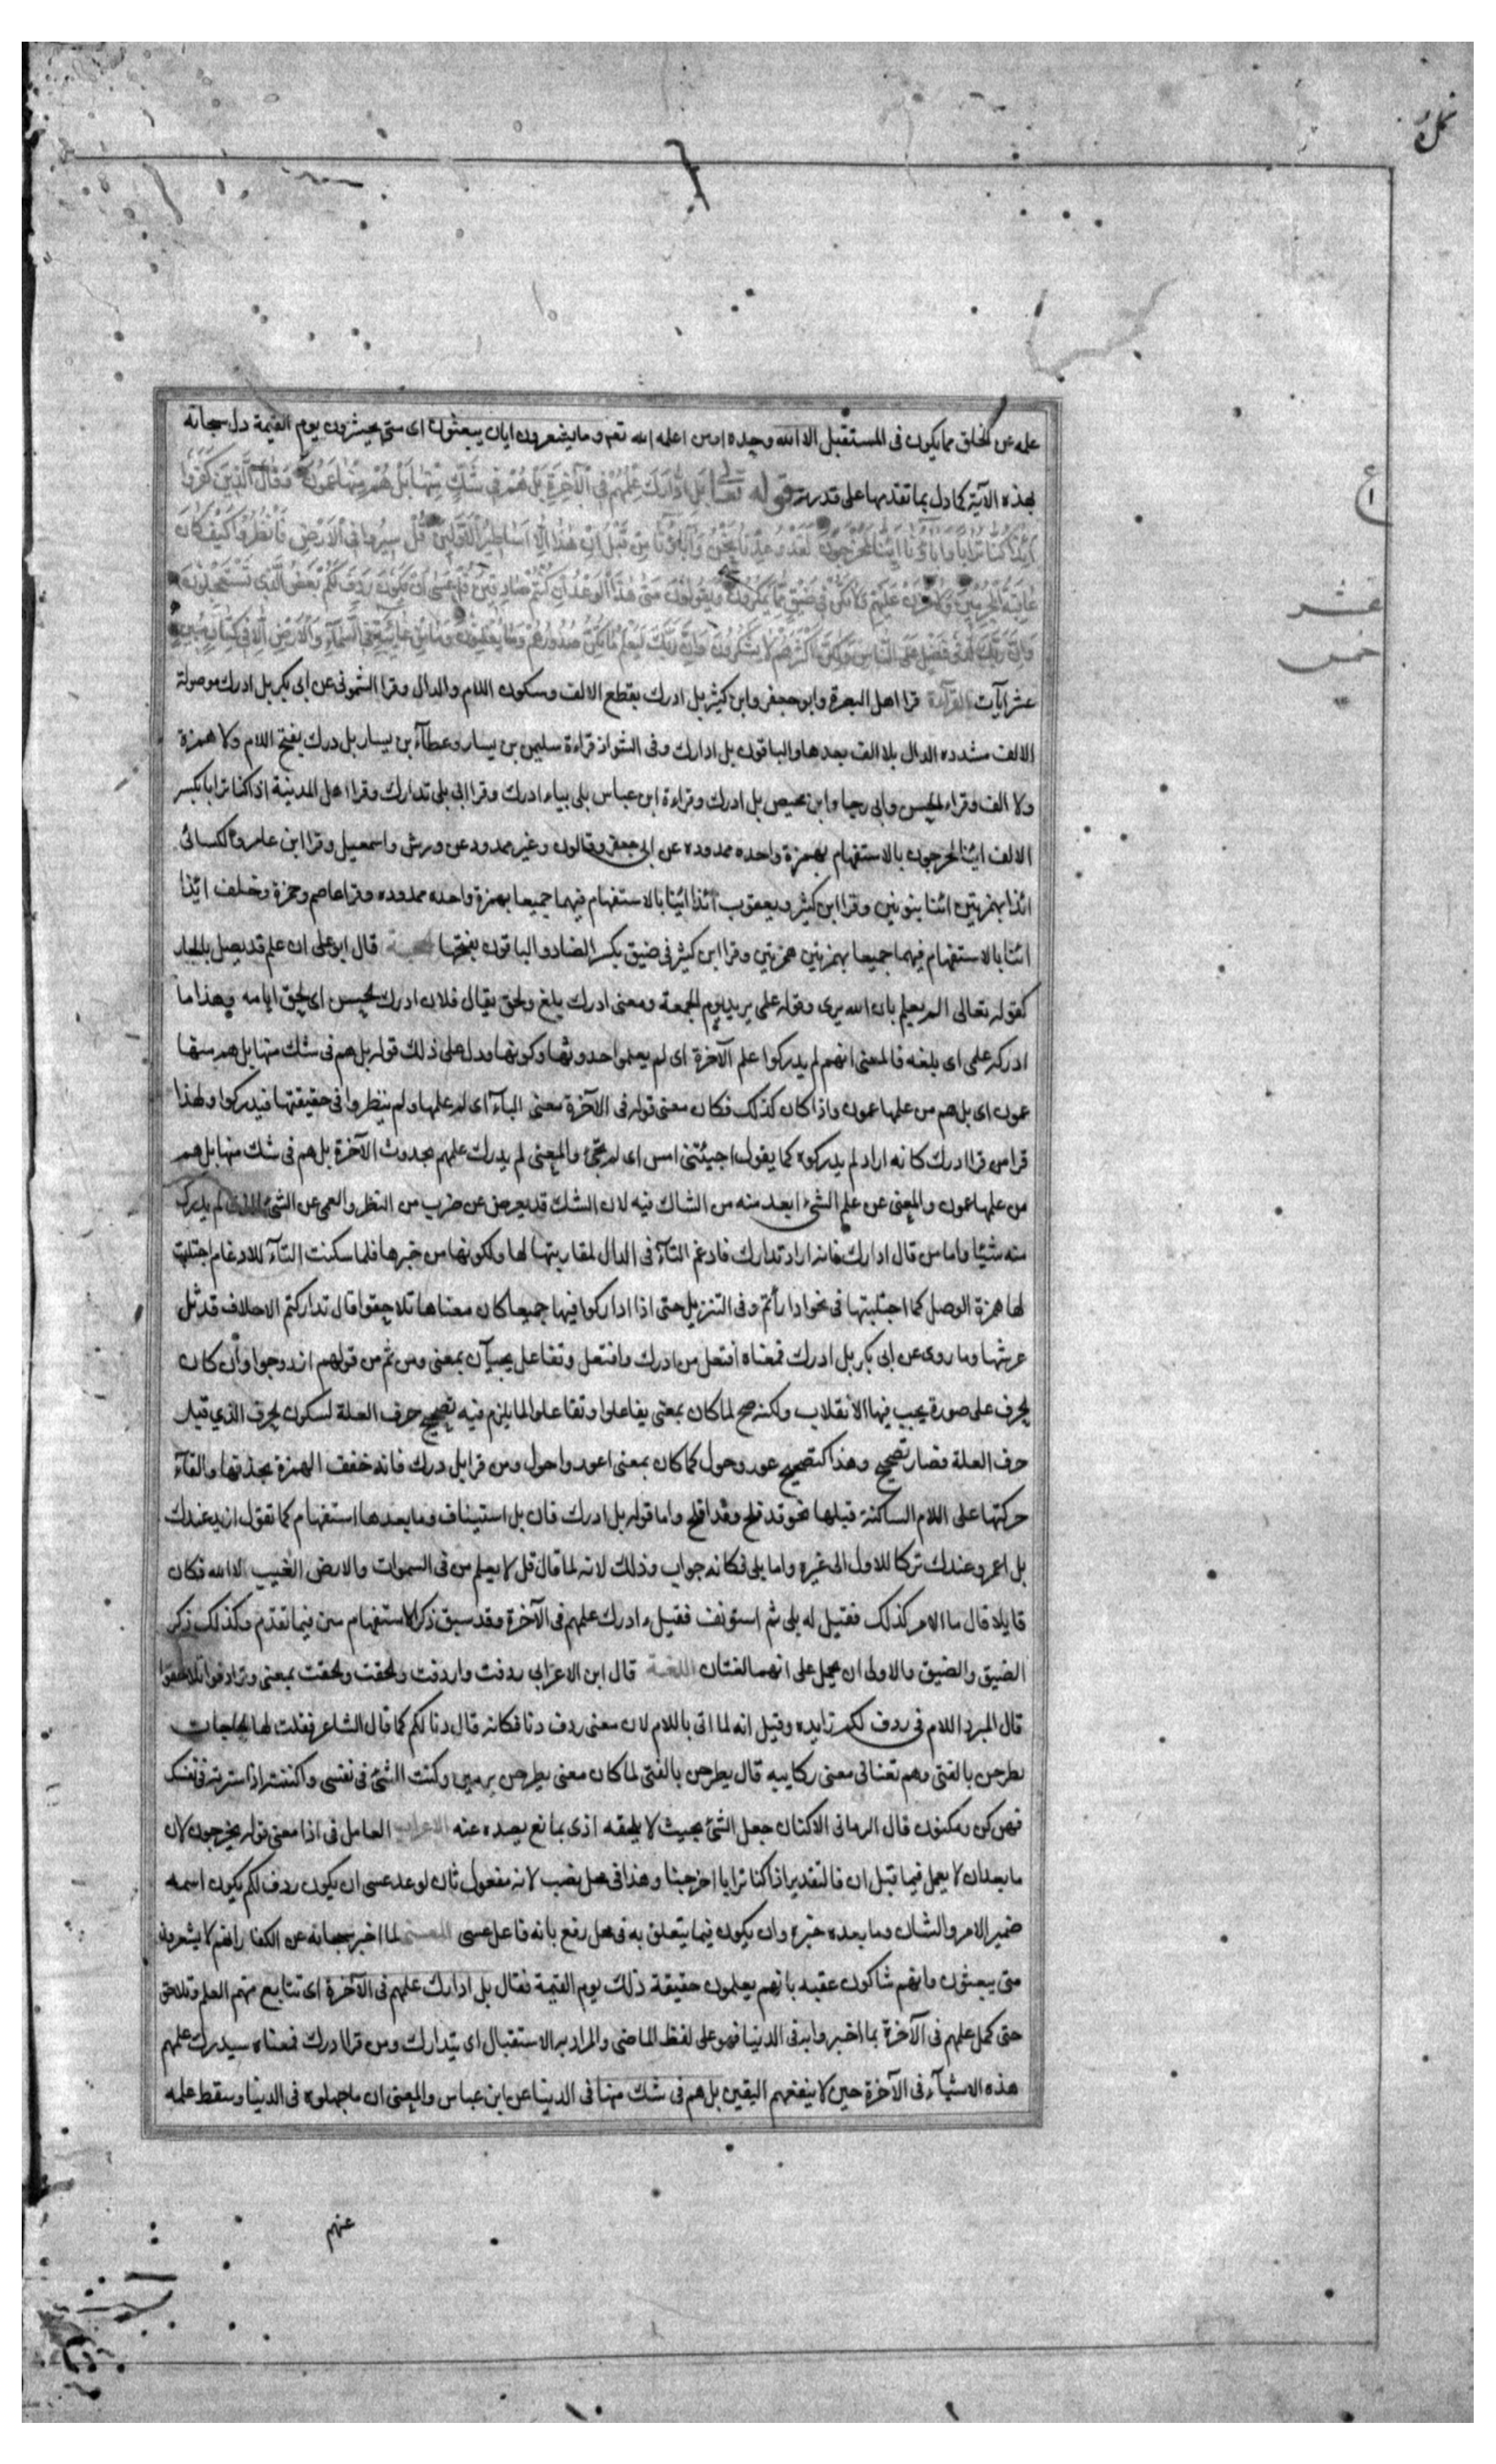 نمل
علمه عن الخلق مما يكون فى المستقبل الا الله وحده او من اعلمه الله تعم وما يشعرون ايان يبعثون اى متى يحشرون يوم القيمة دل سبحانه
بهذه الآية كما دل بما تقدمها على قدرته قوله تعالى بَلِ ادَّارَكَ عِلْمُهُمْ فِى الْآخِرَةِ بَلْ هُمْ فِى شَكٍّ مِنْهَا بَلْ هُمْ مِنْهَا عَمُونَ وَقَالَ الَّذِينَ كَفَرُوا
أَئِذَا كُنَّا تُرَابًا وَآبَاؤُنَا أَئِنَّا لَمُخْرَجُونَ لَقَدْ وُعِدْنَا هَذَا نَحْنُ وَآبَاؤُنَا مِنْ قَبْلُ إِنْ هَذَا إِلَّا أَسَاطِيرُ الْأَوَّلِينَ قُلْ سِيرُوا فِى الْأَرْضِ فَانْظُرُوا كَيْفَ كَانَ
عَاقِبَةُ الْمُجْرِمِينَ وَلَا تَحْزَنْ عَلَيْهِمْ وَلَا تَكُنْ فِى ضَيْقٍ مِمَّا يَمْكُرُونَ وَيَقُولُونَ مَتَى هَذَا الْوَعْدُ إِنْ كُنْتُمْ صَادِقِينَ قُلْ عَسَى أَنْ يَكُونَ رَدِفَ لَكُمْ بَعْضُ الَّذِى تَسْتَعْجِلُونَ
وَإِنَّ رَبَّكَ لَذُو فَضْلٍ عَلَى النَّاسِ وَلَكِنَّ أَكْثَرَهُمْ لَا يَشْكُرُونَ وَإِنَّ رَبَّكَ لَيَعْلَمُ مَا تُكِنُّ صُدُورُهُمْ وَمَا يُعْلِنُونَ وَمَا مِنْ غَائِبَةٍ فِى السَّمَاءِ وَالْأَرْضِ إِلَّا فِى كِتَابٍ مُبِينٍ
عشر آيات القراءة قرا اهل البصرة وابو جعفر وابن كثير بل ادرك بقطع الالف وسكون اللام والدال وقرا الشمونى عن ابى بكر بل ادرك موصولة
الالف مشدده الدال بلا الف بعدها والباقون بل ادارك وفى الشواذ قراءة سليمن بن يسار وعطآء بن يسار بل درك بفتح اللام ولا همزة
ولا الف وقراءة الحسن وابى رجا وابن محيصن بل ادرك وقراءة ابن عباس بلى بياء ادرك وقرا ابى بلى تدارك وقرا اهل المدينة اذا كنا ترابا بكسر
الالف ائنا لمخرجون بالاستفهام بهمزة واحده ممدوده عن ابى جعفر وقالون وغير ممدود عن ورش واسمعيل وقرا ابن عامر والكسائى
ائذا بهمزتين اننا بنونين وقرا ابن كثير ويعقوب ائذا ائينا بالاستفهام فيهما جميعا بهمزة واحده ممدوده وقرا عاصم وحمزة وخلف ائذا
ائنا بالاستفهام فيهما جميعا بهمزتين همزتين وقرا ابن كثير فى ضيق بكسر الضاد والباقون بفتحها الحجة قال ابو على ان علم قد يصل بالجار
كقوله تعالى الم يعلم بان الله يرى وقوله علمى بزيد يوم الجمعة ومعنى ادرك بلغ ولحق يقال فلان ادرك الحسن اى لحق ايامه وهذا ما
ادركه علمى اى بلغه فالمعنى انهم لم يدركوا علم الآخرة اى لم يعلموا حدوثها وكونها ودل على ذلك قوله بل هم فى شك منها بل هم منها
عمون اى بل هم من علمها عمون واذا كان كذلك فكان معنى قوله فى الآخرة معنى البآء اى لم علمها ولم ينظروا فى حقيقتها فيدركوا ولهذا
قرا من قرا ادرك كانه اراد لم يدركوه كما يقول اجئتنى امس اى لم تجئ والمعنى لم يدرك علمهم بحدوث الآخرة بل هم فى شك منها بل هم
من علمها عمون والمعنى عن علم الشىء ابعد منه من الشاك فيه لان الشك قد يعرض عن ضرب من النظر والعمى عن الشئ الذى لم يدرك
منه شيئا واما من قال ادارك فانه اراد تدارك فادغم التآء فى الدال لمقاربتها لها ولكونها من خبرها فلما سكنت التآء للادغام اجتلبت
لها همزة الوصل كما اجتلبتها فى نحو ادارأتم وفى التنزيل حتى اذا اداركوا فيها جميعا كان معناها تلاحقوا قال تداركتم الاحلاف قد ثل
عرشها وما روى عن ابى بكر بل ادرك فمعناه افتعل من ادرك وافتعل وتفاعل يجيآن بمعنى ومن ثم من قولهم ازدوجوا وأن كان
الحرف على صورة يجب فيها الانقلاب ولكنه صح لما كان بمعنى يفاعلوا وتفاعلوا لما يلزم فيه تصحيح حرف العلة لسكون الحرف الذي قبل
حرف العلة فصار تصحيح وهذا كتصحيح عور وحول كما كان بمعنى اعور واحول ومن قرا بل درك فانه خفف الهمزة بحذفها والقآء
حركتها على اللام الساكنة قبلها نحو قد فلح وقد افلح واما قوله بل ادرك فان بل استيناف وما بعدها استفهام كما تقول ازيد عندك
بل اعمرو عندك تركا للاول الى غيره واما بلى فكانه جواب وذلك لانه لما قال قل لا يعلم من فى السموات والارض الغيب الا الله فكان
قايلا قال ما الامر كذلك فقيل له بلى ثم استونف فقيل ء ادرك علمهم فى الآخرة وقد سبق ذكر الاستفهام ين فيما تقدم وكذلك ذكر
الضيق والضيق والاولى ان يحمل على انهما لغتان اللغة قال ابن الاعرابى ردفت واردفت ولحقت والحقت بمعنى وترادفوا تلاحقوا
قال المبرد اللام فى ردف لكم زايده وقيل انه لما اتى باللام لان معنى ردف دنا فكانه قال دنا لكم كما قال الشاعر فقلت لها الحاجات
يطرحن بالفتى وهم تعنانى معنى ركايبه قال يطرحن بالفتى لما كان معنى يطرحن يرمين وكنت الشئ فى نفسى واكننته اذا سترته فى نفسك
فهو كن ومكنون قال الرمانى الاكنان جعل الشئ بحيث لا يلحقه اذى بمانع يصده عنه الاعراب العامل فى اذا معنى قوله يخرجون لان
ما بعد ان لا يعمل فيما قبل ان فالتقدير اذا كنا ترابا اخرجنا وهذا فى محل نصب لانه مفعول ثان لوعد عسى ان يكون ردف لكم يكون اسمه
ضمير الامر والشان وما بعده خبره وان يكون فيما يتعلق به فى محل رفع بانه فاعل عسى المعنى لما اخبر سبحانه عن الكفار انهم لا يشعرون
متى يبعثون وانهم شاكون عقبه بانهم يعلمون حقيقة ذلك يوم القيمة فقال بل ادارك علمهم فى الآخرة اى تتابع منهم العلم وتلاحق
حتى كمل علمهم فى الآخرة بما اخبروا به فى الدنيا فهو على لفظ الماضى والمراد به الاستقبال اى يتدارك ومن قرا ادرك فمعناه سيدرك علمهم
هذه الاشيآء فى الآخرة حين لا ينفعهم اليقين بل هم فى شك منها فى الدنيا عن ابن عباس والمعنى ان ما جهلوه فى الدنيا وسقط علمه
ع
١
عشر
خمس
عنهم